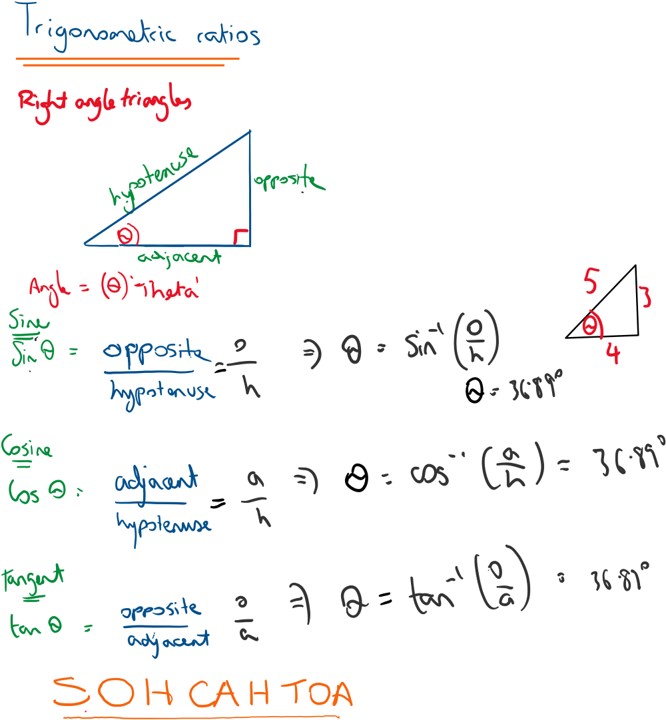 Trigonometric ratios
Right angle triangles
hypotenuse
opposite
θ
adjacent
Angle = (θ) 'Theta'
5
3
θ
4
Sine
Sin θ = opposite/hypotenuse = o/h ⇒ θ = sin⁻¹(o/h)
θ = 36.89°
Cosine
Cos θ = adjacent/hypotenuse = a/h ⇒ θ = cos⁻¹(a/h) = 36.89°
tangent
tan θ = opposite/adjacent o/a ⇒ θ = tan⁻¹(o/a) = 36.89°
SOH CAH TOA